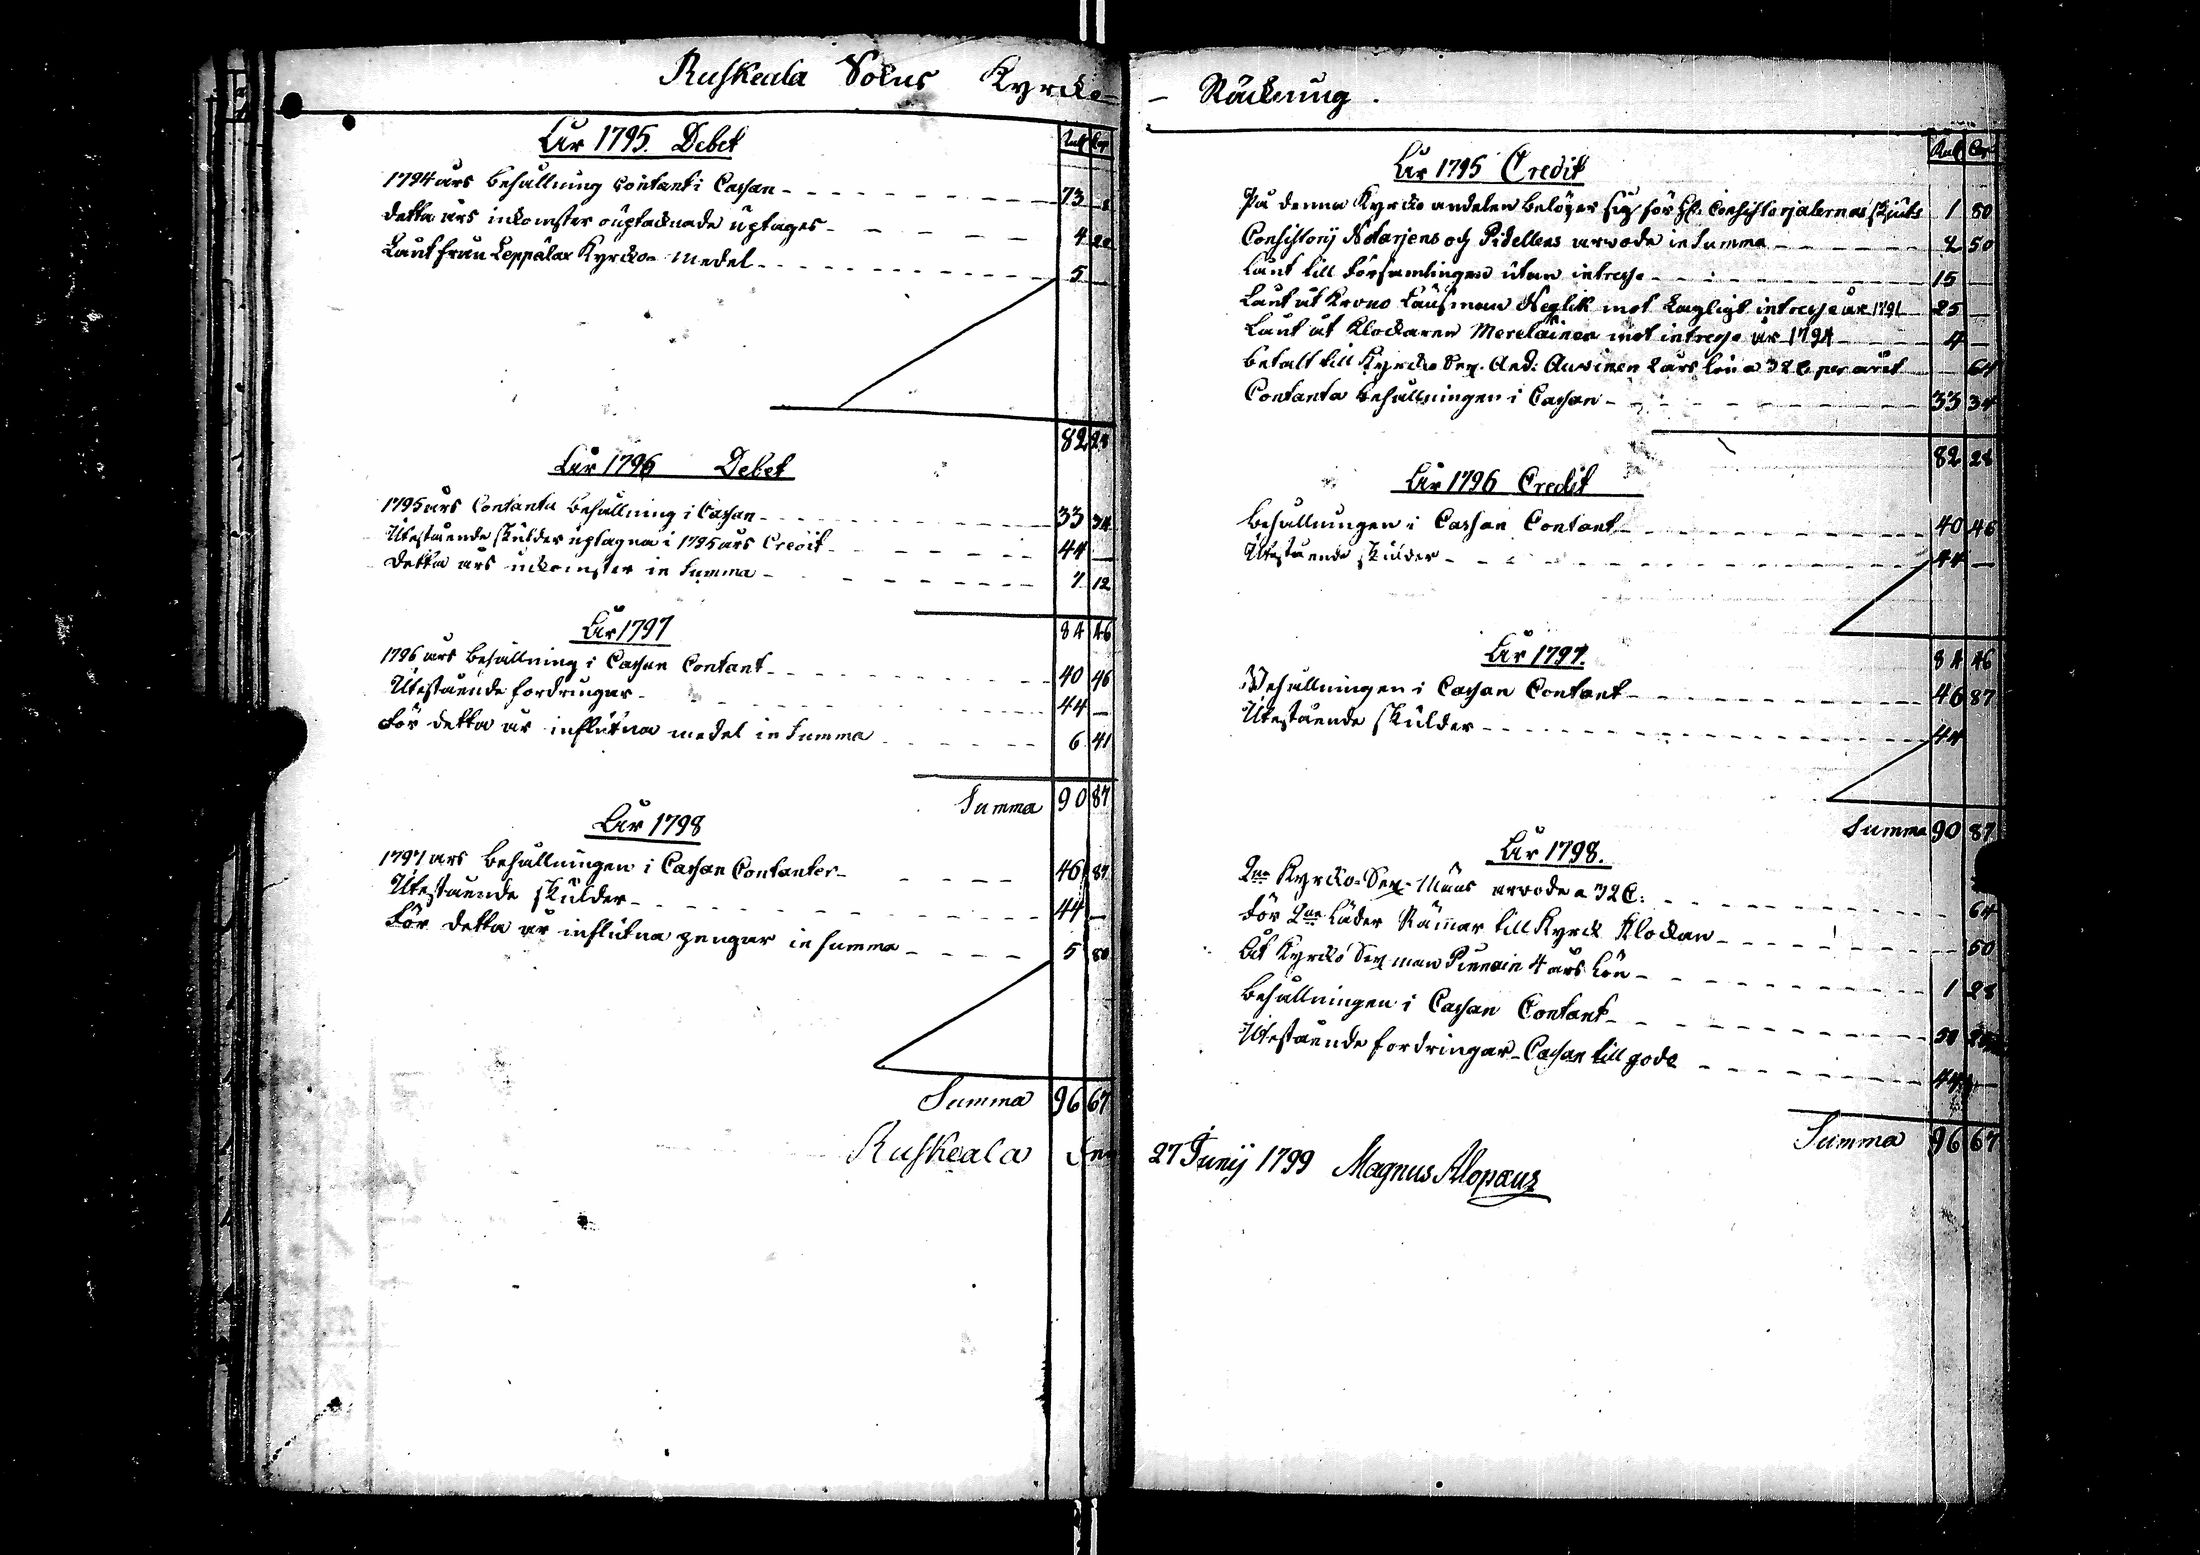 Ruskeala Sokns Kyrcko-
År 1795. Debet
Rub Cop
1794 års Behållning Contant i Cassan 73
detta års inkomster oupteknade uptages 4 28
Lånt från Leppälax Kyrcko-Medel 5 —
82 28
År 1796 Debet
1795 års Contanta Behållning i Cassan 33 34
Utestående skulder uptagna i 1795 års Credit 44 —
detta års inkomster in Summa 7 12
84 46
År 1797
1796 års Behållning i Cassan Contant 40 46
Utestående fordringar 44 —
För detta år influtna medel in Summa 6 41
Summa 90 87
År 1798
1797 års Behållningen i Cassan Contanter 46 87
Utestående skulder 44 —
För detta år influtna pengar in summa 5 80
Summa 96 67
Ruskeala den
- Räckning.
Rub Cop
År 1795 Credit
På denna Kyrcko andelen belöper sig för Consistorialernas skjuts 1 80
Consistorij Notarjens och Pidellens arwode in Summa 2 50
Lånt till Församlingen utan intresse 15 —
Lånt åt Krono Länsman Neglik mot Lagligt intresse år 1791 25 —
Lånt åt Klockaren Mereläinen mot intresse år 1794 4 —
betalt till Kyrcko Sex. And: Auvinen 2 års lön a 32 C per året 64
Contanta Behållningen i Cassan 33 34
82 28
År 1796 Credit
Behållningen i Cassan Contant 40 46
Utestående skulder 44 —
84 46
År 1797.
Behållningen i Cassan Contant 46 87
Utestående skulder 44
Summa 90 87
År 1798.
2ne Kyrcko-Sex-Mäns arwode a 32 C: 64
För 2ne Läder Rämar till Kyrck Klockan 50
Åt Kyrcko Sex man Pinnoin 4 års Lön 1 28
Behållningen i Cassan Contant 50 25
Utestående fordringar Cassan till godo 44 —
Summa 96 67
27 Junij 1799 Magnus Alopæus